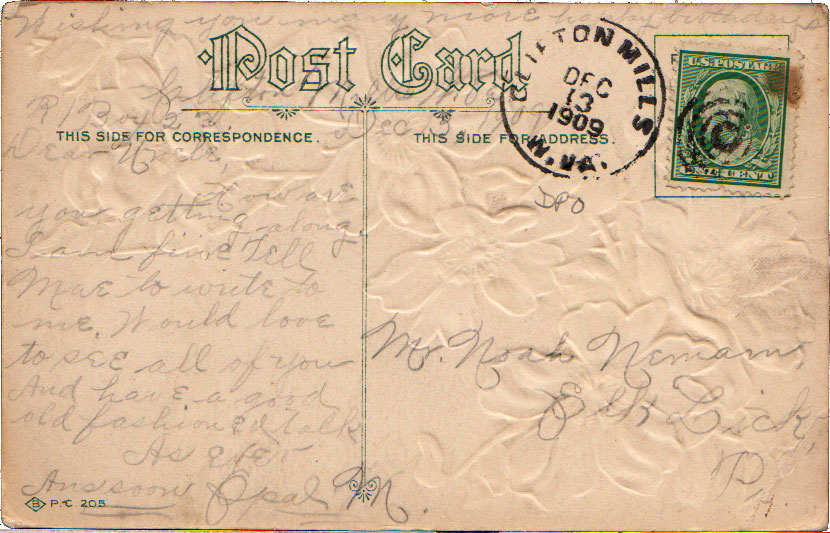 Wishing you many more happy birthdays
Post Card
Clifton Mills
R1 Box 2 Dec
CLIFTON MILLS
DEC
13
1909
W. VA.
U.S. POSTAGE
ONE CENT
THIS SIDE FOR CORRESPONDENCE.
THIS SIDE FOR ADDRESS.
Dear Uncle,
How are
you getting along
I am fine Tell
Mae to write to
me. Would love
to see all of you
And have a good
old fashioned talk
As ever
Ans soon Opal M.
DPO
Mr. Noah
Elk Lick,
Pa.
B P.C. 205